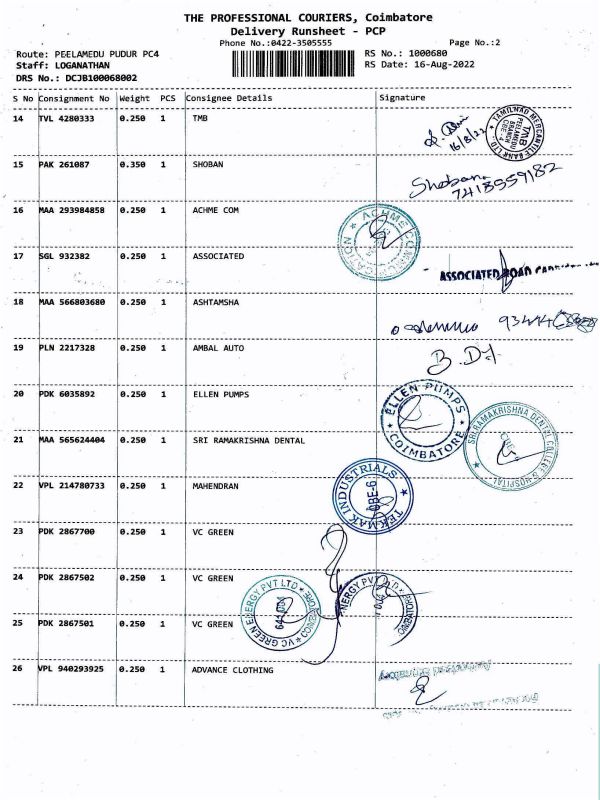 THE PROFESSIONAL COURIERS, Coimbatore
Delivery Runsheet - PCP
Phone No.:0422-3505555 Page No.:2
Route: PEELAMEDU PUDUR PC4 RS No.: 1000680
Staff: LOGANATHAN RS Date: 16-Aug-2022
DRS No.: DCJB100068002
S No Consignment No Weight PCS Consignee Details Signature
14 TVL 4280333 0.250 1 TMB
16/8/22
TAMILNAD MERCANTILE BANK LTD
TMB
PEELAMEDU
BRANCH
CBE-4
15 PAK 261087 0.350 1 SHOBAN
Shobana
7418559182
16 MAA 293984858 0.250 1 ACHME COM
ACHME COMMUNICATION
17 SGL 932382 0.250 1 ASSOCIATED
ASSOCIATED ROAD
18 MAA 566803680 0.250 1 ASHTAMSHA
19 PLN 2217328 0.250 1 AMBAL AUTO
20 PDK 6035892 0.250 1 ELLEN PUMPS
ELLEN PUMPS
COIMBATORE
21 MAA 565624404 0.250 1 SRI RAMAKRISHNA DENTAL
SRI RAMAKRISHNA DENTAL COLLEGE & HOSPITAL
22 VPL 214780733 0.250 1 MAHENDRAN
TEKMAK INDUSTRIALS
CBE-6
23 PDK 2867700 0.250 1 VC GREEN
24 PDK 2867502 0.250 1 VC GREEN
VC GREEN ENERGY PVT LTD
COIMBATORE
641 004
ENERGY PVT
25 PDK 2867501 0.250 1 VC GREEN
26 VPL 940293925 0.250 1 ADVANCE CLOTHING